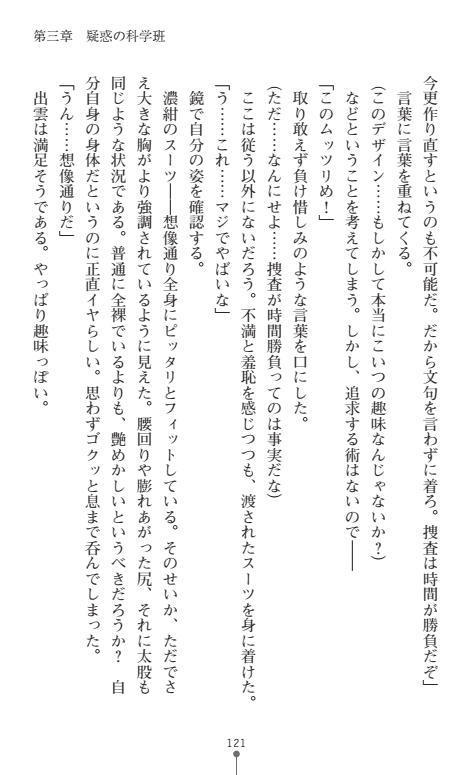 第三章　疑惑の科学班
今更作り直すというのも不可能だ。だから文句を言わずに着ろ。捜査は時間が勝負だぞ」
　言葉に言葉を重ねてくる。
（このデザイン……もしかして本当にこいつの趣味なんじゃないか？）
　などということを考えてしまう。しかし、追求する術はないので――
「このムッツリめ！」
　取り敢えず負け惜しみのような言葉を口にした。
（ただ……なんにせよ……捜査が時間勝負ってのは事実だな）
　ここは従う以外にないだろう。不満と羞恥を感じつつも、渡されたスーツを身に着けた。
「う……これ……マジでやばいな」
　鏡で自分の姿を確認する。
　濃紺のスーツ――想像通り全身にピッタリとフィットしている。そのせいか、ただでさ
え大きな胸がより強調されているように見えた。腰回りや膨れあがった尻、それに太股も
同じような状況である。普通に全裸でいるよりも、艶めかしいというべきだろうか？　自
分自身の身体だというのに正直イヤらしい。思わずゴクッと息まで呑んでしまった。
「うん……想像通りだ」
　出雲は満足そうである。やっぱり趣味っぽい。
121